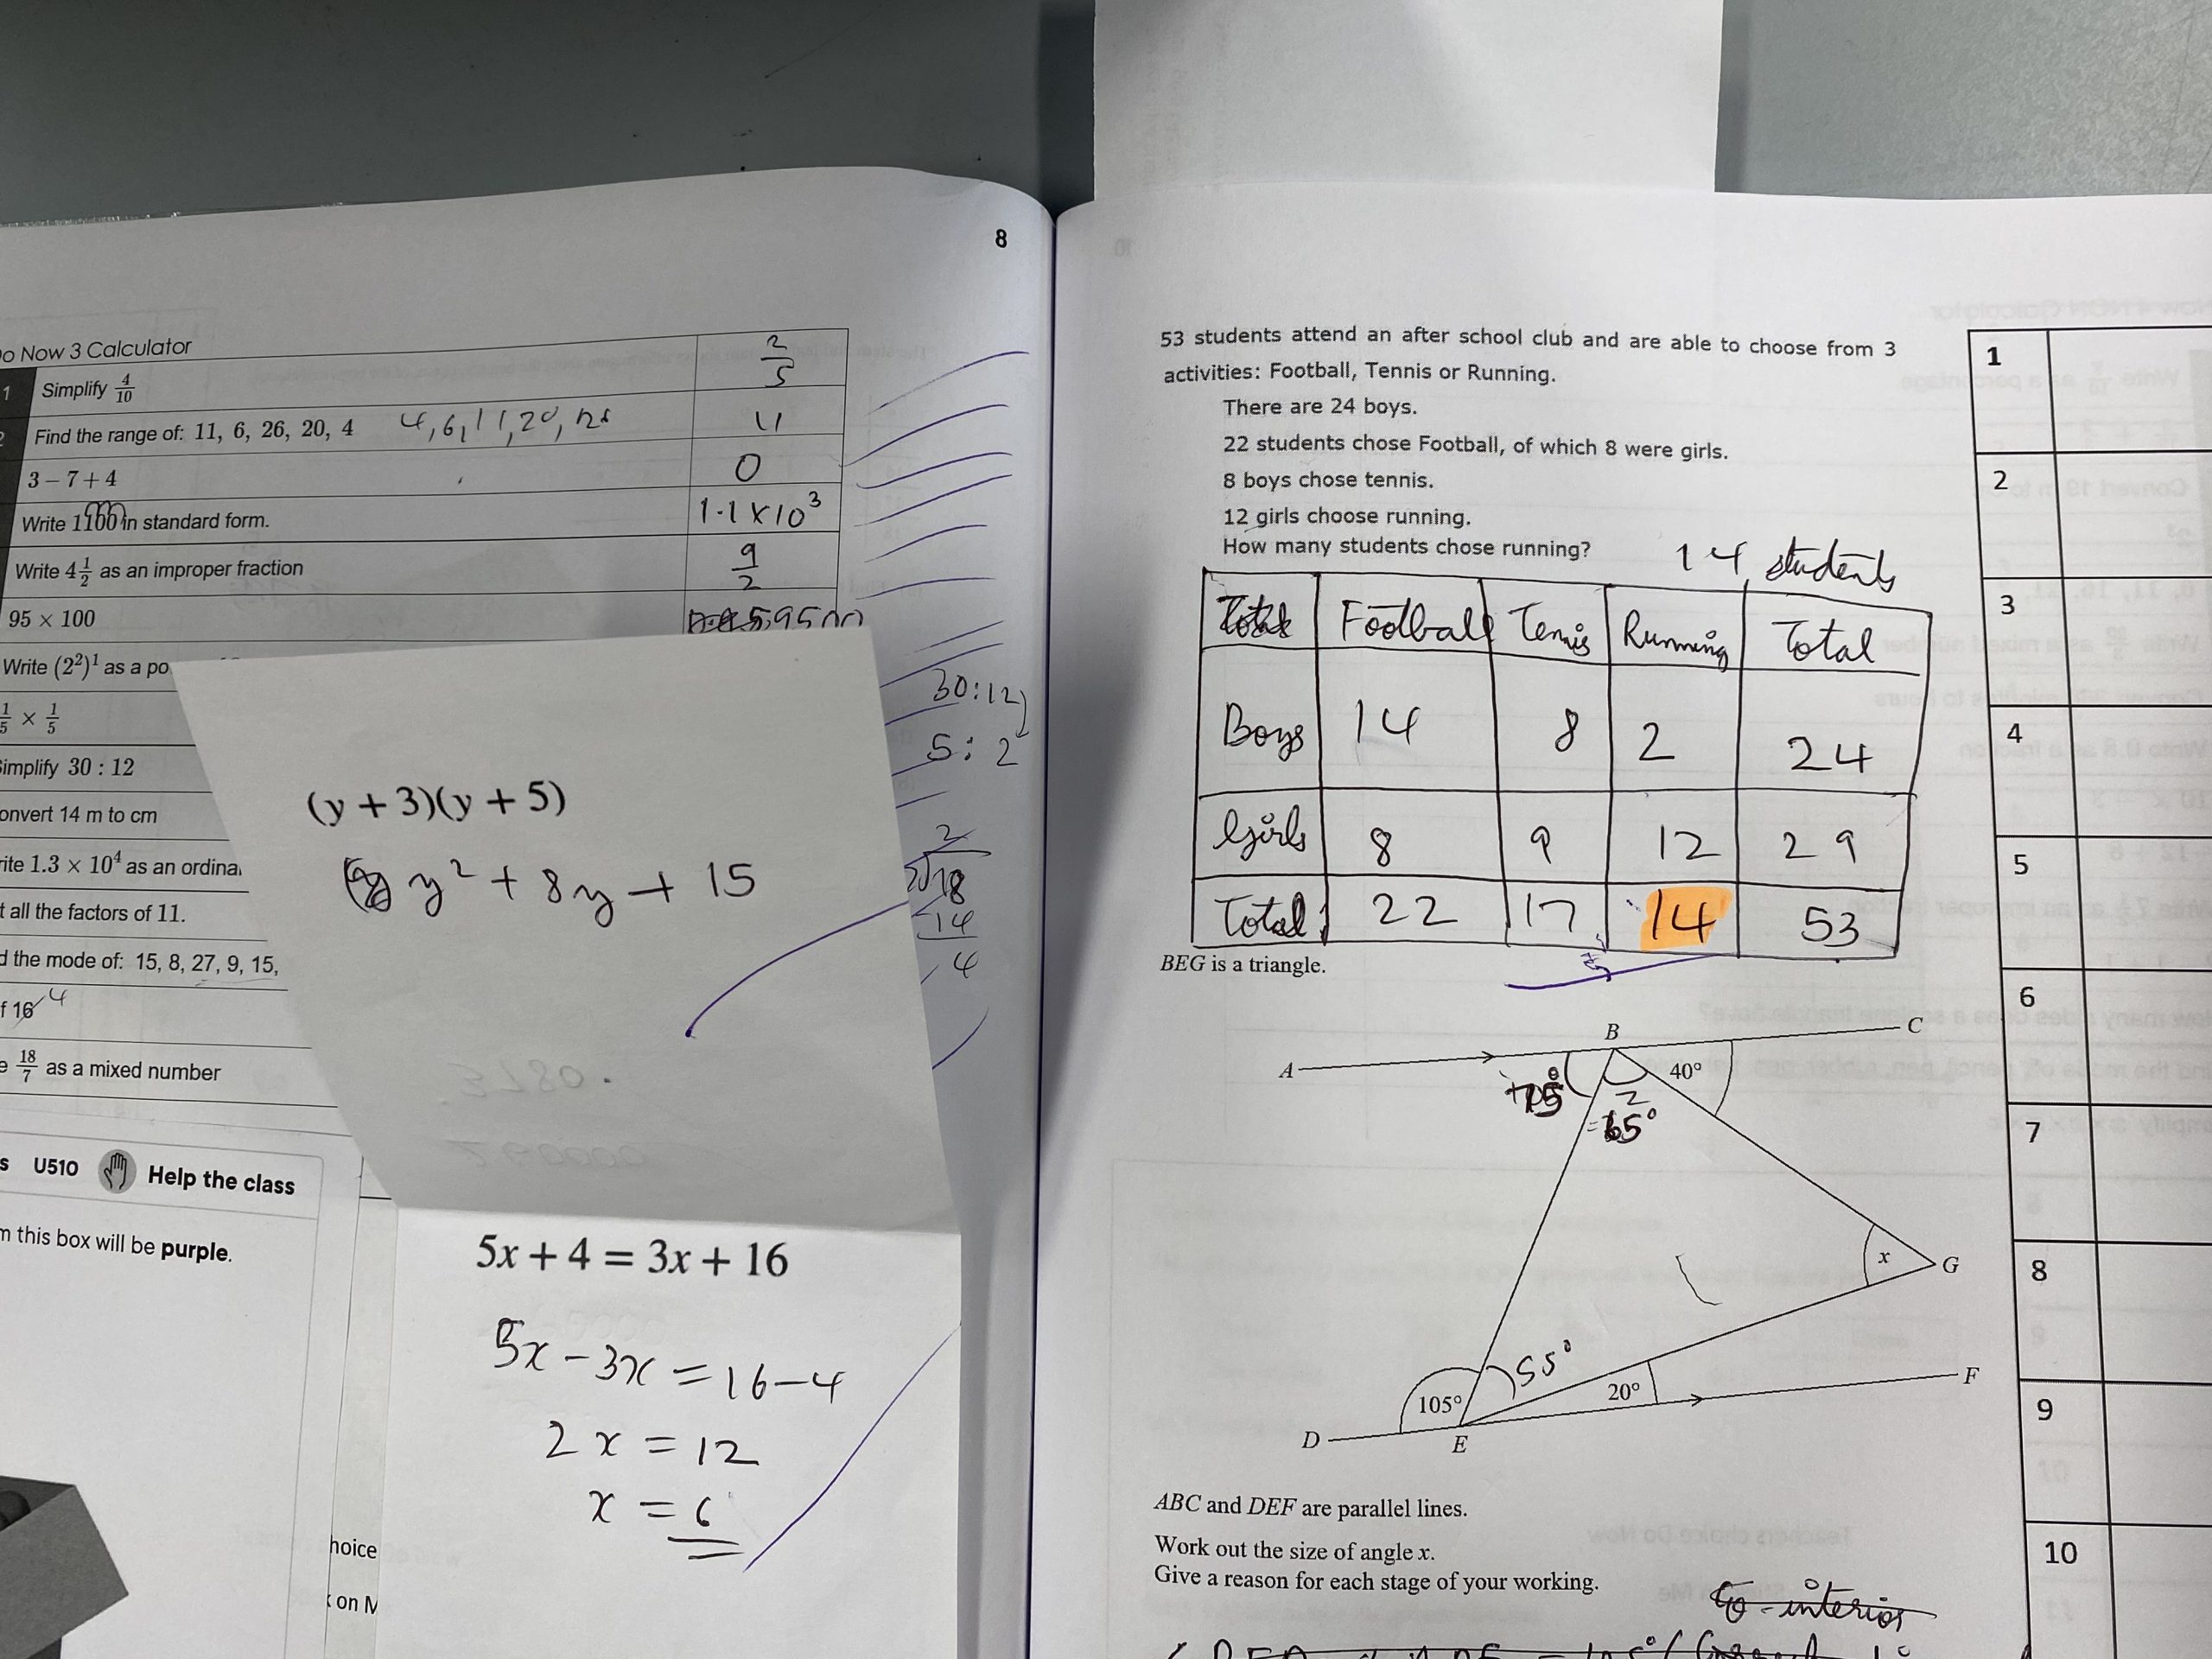 8
Do Now 3 Calculator
1 Simplify 4/10 2/5
Find the range of: 11, 6, 26, 20, 4 4, 6, 11, 20, 11
3 – 7 + 4 0
Write 1100 in standard form. 1.1 × 10³
Write 4 1/2 as an improper fraction 9/2
95 × 100 9500
Write (2²)¹ as a po
1/5 × 1/5
Simplify 30 : 12
onvert 14 m to cm
rite 1.3 × 10⁴ as an ordina
t all the factors of 11.
d the mode of: 15, 8, 27, 9, 15,
f 16 4
e 18/7 as a mixed number
30:12
5:2
2
18
14
4
(y + 3)(y + 5)
y² + 8y + 15
s U510 Help the class
m this box will be purple.
hoice
on M
5x + 4 = 3x + 16
5x – 3x = 16 – 4
2x = 12
x = 6
53 students attend an after school club and are able to choose from 3
activities: Football, Tennis or Running.
There are 24 boys.
22 students chose Football, of which 8 were girls.
8 boys chose tennis.
12 girls choose running.
How many students chose running? 14 students
Football Tennis Running Total
Boys 14 8 2 24
Girls 8 9 12 29
Total 22 17 14 53
BEG is a triangle.
A B C
40°
75°
= 65°
x G
55°
105° 20° F
D E
ABC and DEF are parallel lines.
Work out the size of angle x.
Give a reason for each stage of your working.
Co-interior
1
2
3
4
5
6
7
8
9
10